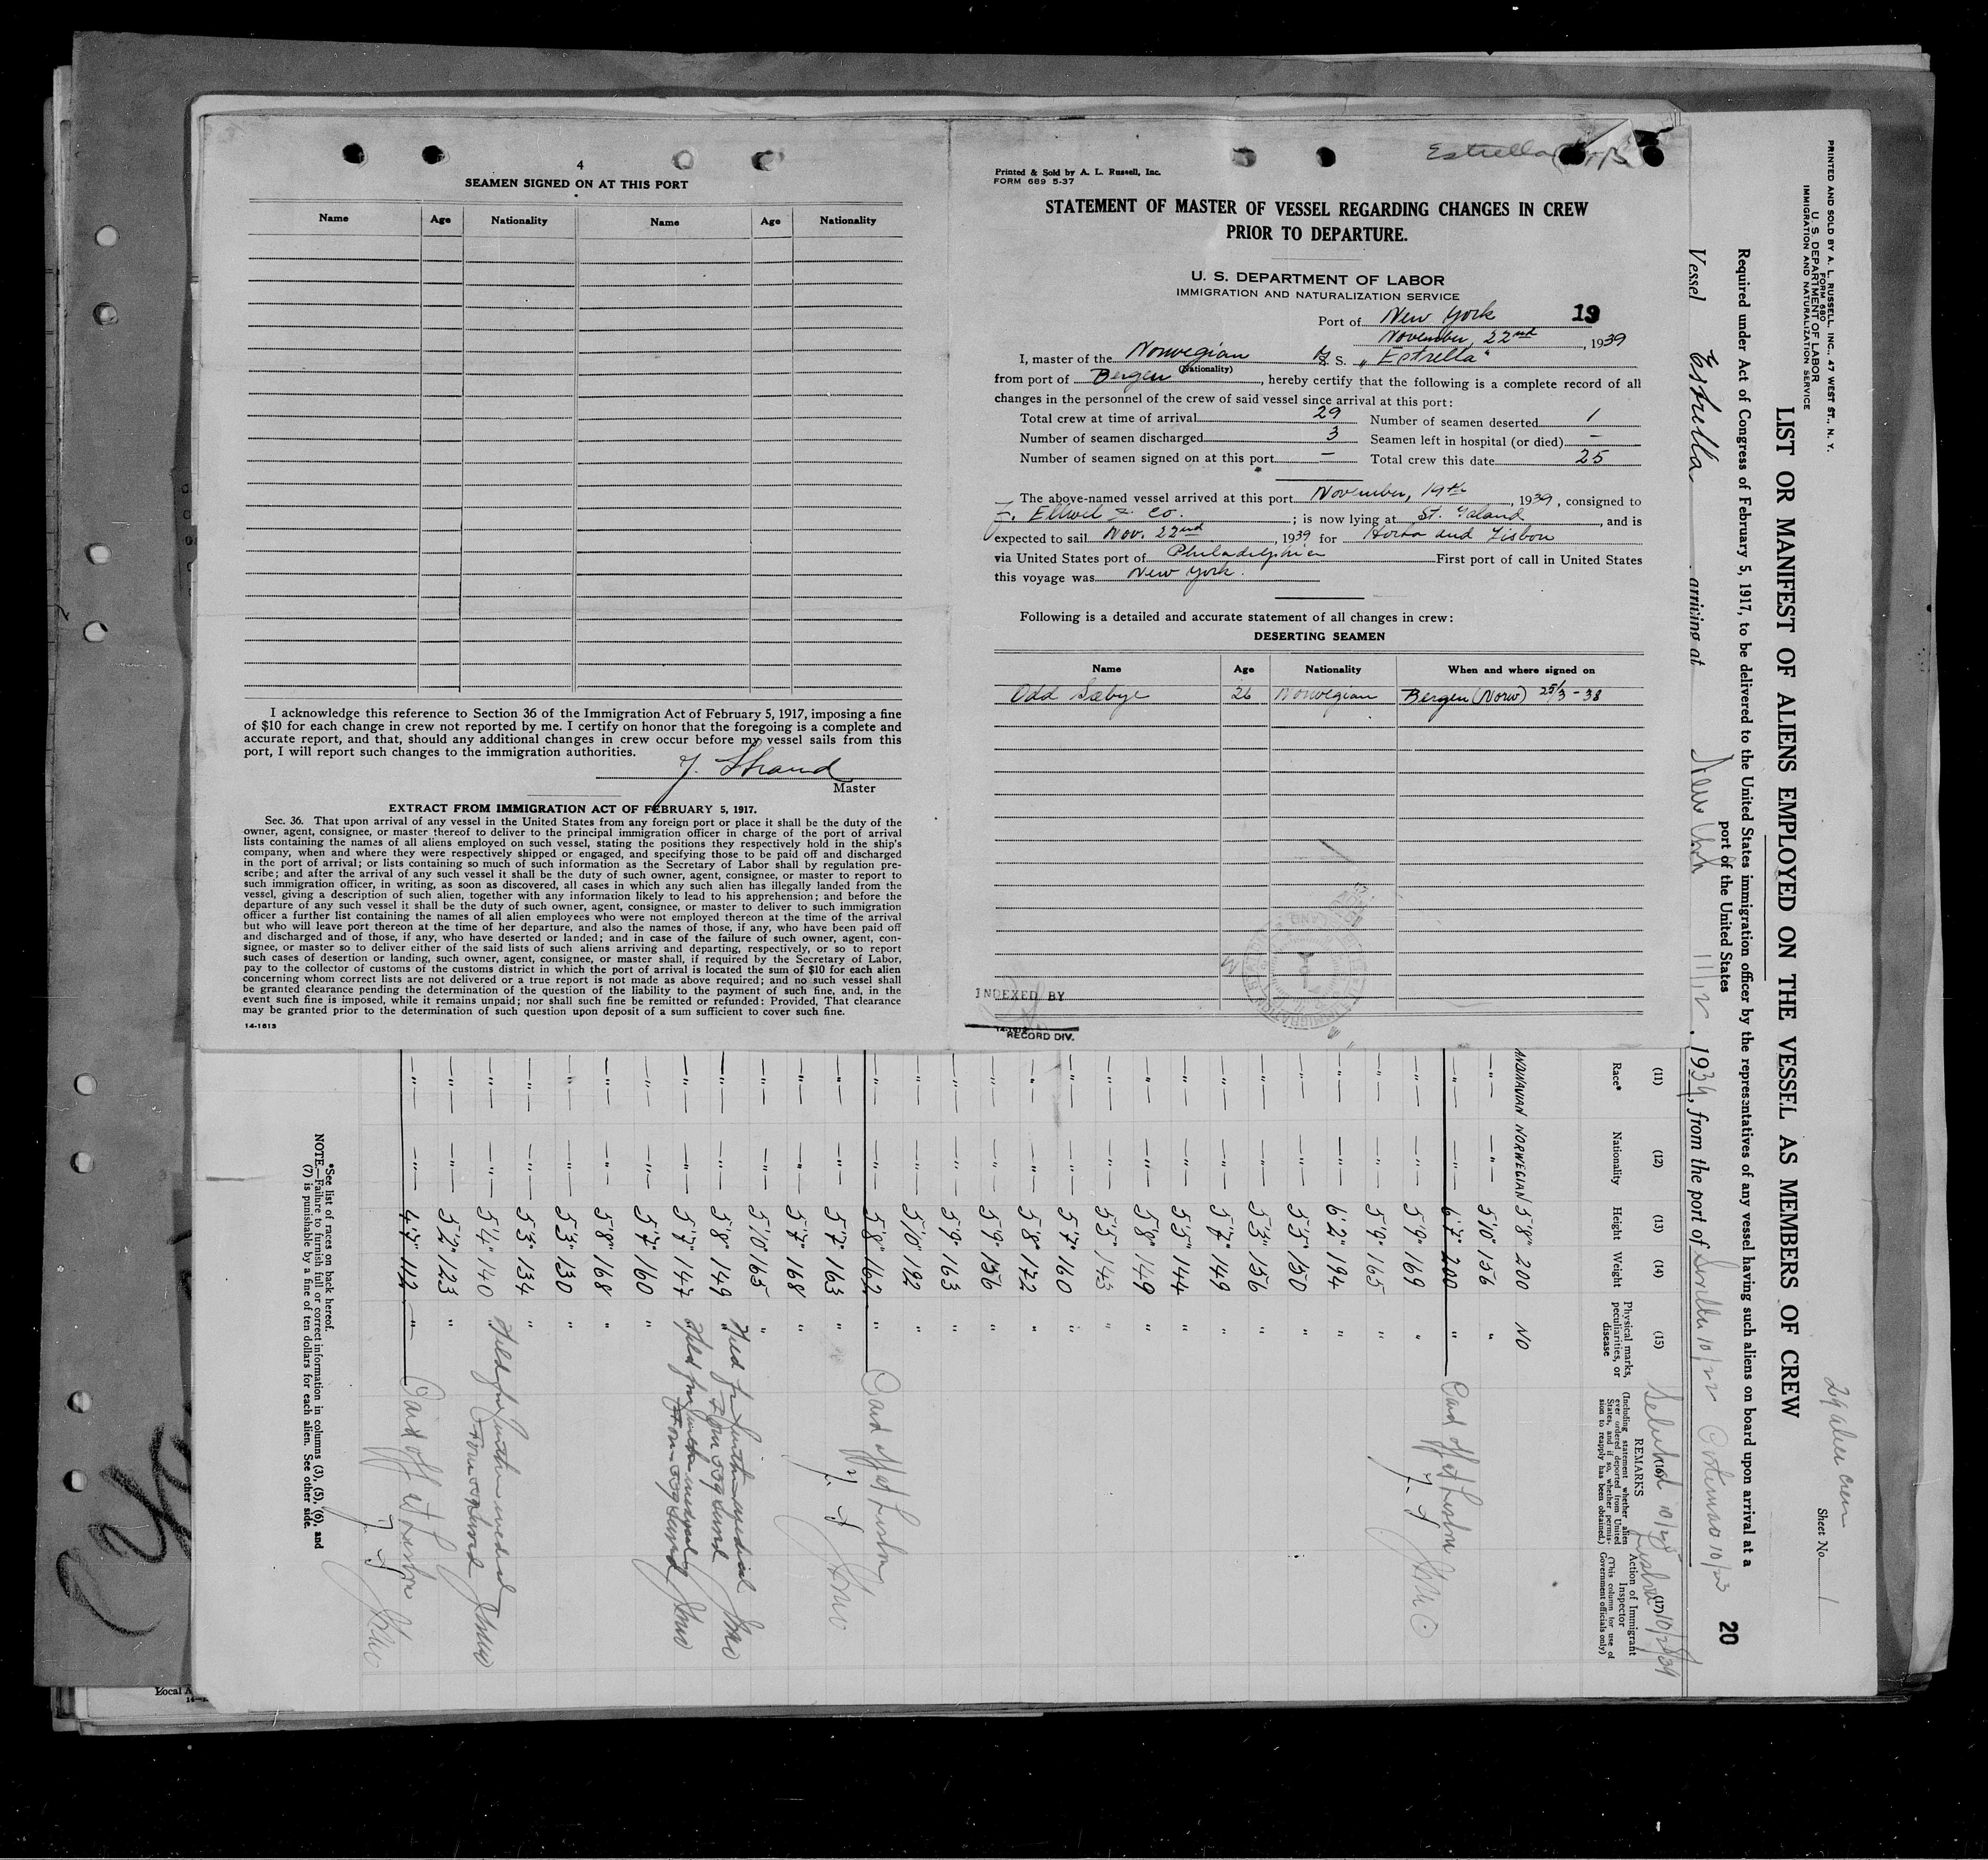 4
SEAMEN SIGNED ON AT THIS PORT
Name Age Nationality Name Age Nationality
I acknowledge this reference to Section 36 of the Immigration Act of February 5, 1917, imposing a fine
of $10 for each change in crew not reported by me. I certify on honor that the foregoing is a complete and
accurate report, and that, should any additional changes in crew occur before my vessel sails from this
port, I will report such changes to the immigration authorities.
J. Strand
Master
EXTRACT FROM IMMIGRATION ACT OF FEBRUARY 5, 1917.
Sec. 36. That upon arrival of any vessel in the United States from any foreign port or place it shall be the duty of the
owner, agent, consignee, or master thereof to deliver to the principal immigration officer in charge of the port of arrival
lists containing the names of all aliens employed on such vessel, stating the positions they respectively hold in the ship's
company, when and where they were respectively shipped or engaged, and specifying those to be paid off and discharged
in the port of arrival; or lists containing so much of such information as the Secretary of Labor shall by regulation pre-
scribe; and after the arrival of any such vessel it shall be the duty of such owner, agent, consignee, or master to report to
such immigration officer, in writing, as soon as discovered, all cases in which any such alien has illegally landed from the
vessel, giving a description of such alien, together with any information likely to lead to his apprehension; and before the
departure of any such vessel it shall be the duty of such owner, agent, consignee, or master to deliver to such immigration
officer a further list containing the names of all alien employees who were not employed thereon at the time of the arrival
but who will leave port thereon at the time of her departure, and also the names of those, if any, who have been paid off
and discharged and of those, if any, who have deserted or landed; and in case of the failure of such owner, agent, con-
signee, or master so to deliver either of the said lists of such aliens arriving and departing, respectively, or so to report
such cases of desertion or landing, such owner, agent, consignee, or master shall, if required by the Secretary of Labor,
pay to the collector of customs of the customs district in which the port of arrival is located the sum of $10 for each alien
concerning whom correct lists are not delivered or a true report is not made as above required; and no such vessel shall
be granted clearance pending the determination of the question of the liability to the payment of such fine, and, in the
event such fine is imposed, while it remains unpaid; nor shall such fine be remitted or refunded: Provided, That clearance
may be granted prior to the determination of such question upon deposit of a sum sufficient to cover such fine.
14-1613
Estrella
Printed & Sold by A. L. Russell, Inc.
FORM 689 5-37
STATEMENT OF MASTER OF VESSEL REGARDING CHANGES IN CREW
PRIOR TO DEPARTURE.
U. S. DEPARTMENT OF LABOR
IMMIGRATION AND NATURALIZATION SERVICE
Port of New York 19
November, 22nd, 1939
I, master of the Norwegian S. S. "Estrella"
(Nationality)
from port of Bergen, hereby certify that the following is a complete record of all
changes in the personnel of the crew of said vessel since arrival at this port:
Total crew at time of arrival 29 Number of seamen deserted 1
Number of seamen discharged 3 Seamen left in hospital (or died) –
Number of seamen signed on at this port – Total crew this date 25
The above-named vessel arrived at this port November, 19th, 1939, consigned to
& Co.; is now lying at St. , and is
expected to sail Nov. 22nd, 1939 for Horta and Lisbon
via United States port of Philadelphia First port of call in United States
this voyage was New York.
Following is a detailed and accurate statement of all changes in crew:
DESERTING SEAMEN
Name Age Nationality When and where signed on
Odd Sæbye 26 Norwegian Bergen (Norw) 25/3 - 38
INDEXED BY
RECORD DIV.
PRINTED AND SOLD BY A. L. RUSSELL, INC., 47 WEST ST., N. Y.
FORM 680
U. S. DEPARTMENT OF LABOR
IMMIGRATION AND NATURALIZATION SERVICE
29 alien crew
Sheet No. 1
LIST OR MANIFEST OF ALIENS EMPLOYED ON THE VESSEL AS MEMBERS OF CREW
20
Required under Act of Congress of February 5, 1917, to be delivered to the United States immigration officer by the representatives of any vessel having such aliens on board upon arrival at a
port of the United States
Vessel Estrella arriving at New York , 1939, from the port of
(11) (12) (13) (14) (15) (16) (17)
Race* Nationality Height Weight Physical marks, peculiarities, or disease
REMARKS
(Including statement whether alien ever ordered deported from United States, and if so, whether permission to reapply has been obtained.)
Action of Immigrant Inspector
(This column for use of Government officials only)
ANDINAVIAN NORWEGIAN 5'8" 200 NO
—"— —"— 5'10" 156 "
—"— —"— 6'7" 200 " Paid off at Lisbon
—"— —"— 5'9" 169 "
—"— —"— 5'9" 165 "
—"— —"— 6'2" 194 "
—"— —"— 5'5" 150 "
—"— —"— 5'3" 156 "
—"— —"— 5'7" 149 "
—"— —"— 5'5" 144 "
—"— —"— 5'8" 149 "
—"— —"— 5'5" 143 "
—"— —"— 5'7" 160 "
—"— —"— 5'8" 172 "
—"— —"— 5'9" 156 "
—"— —"— 5'9" 163 "
—"— —"— 5'10" 192 "
—"— —"— 5'8" 162 " Paid off at Lisbon
—"— —"— 5'7" 163 "
—"— —"— 5'7" 168 "
—"— —"— 5'10" 165 "
—"— —"— 5'8" 149 " Held for further medical
—"— —"— 5'7" 147 Held for further medical
—"— —"— 5'7" 160 "
—"— —"— 5'8" 168 "
—"— —"— 5'3" 130 "
—"— —"— 5'3" 134 "
—"— —"— 5'4" 140 Held for further medical
—"— —"— 5'2" 123 "
—"— —"— 4'7" 112 " Paid off at Lisbon
*See list of races on back hereof.
NOTE.—Failure to furnish full or correct information in columns (3), (5), (6), and
(7) is punishable by a fine of ten dollars for each alien. See other side.
Local A